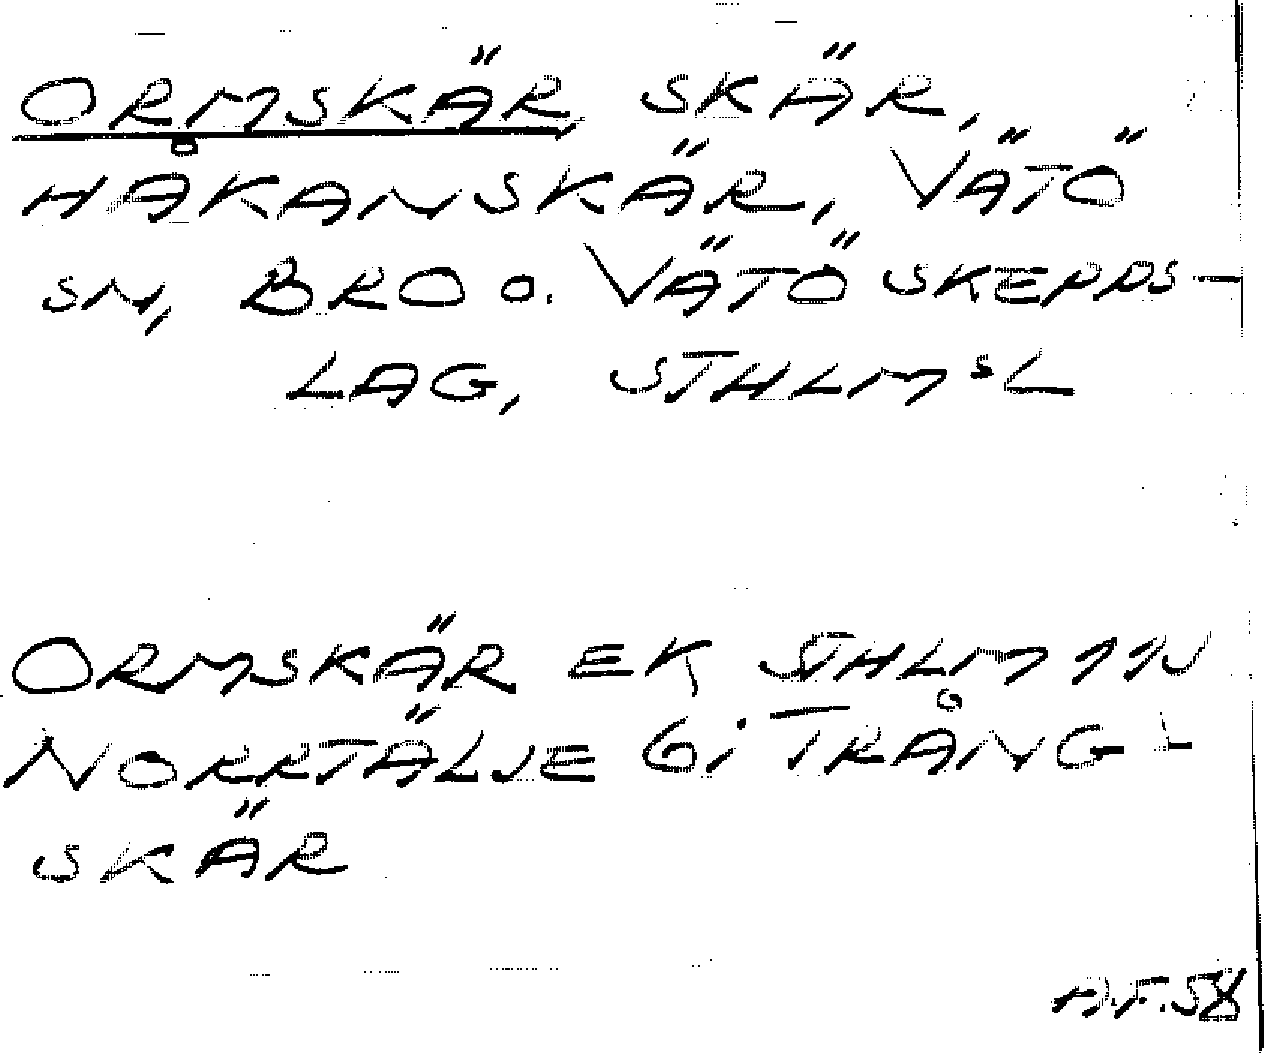 ORMSKÄR, SKÄR,
HÅKANSKÄR, VÄTÖ
SN, BRO O. VÄTÖ SKEPPS-
LAG, STHLMS L
ORMSKÄR EK STHLM 11N
NORRTÄLJE 6i TRÅNG-
SKÄR
A.F. 58